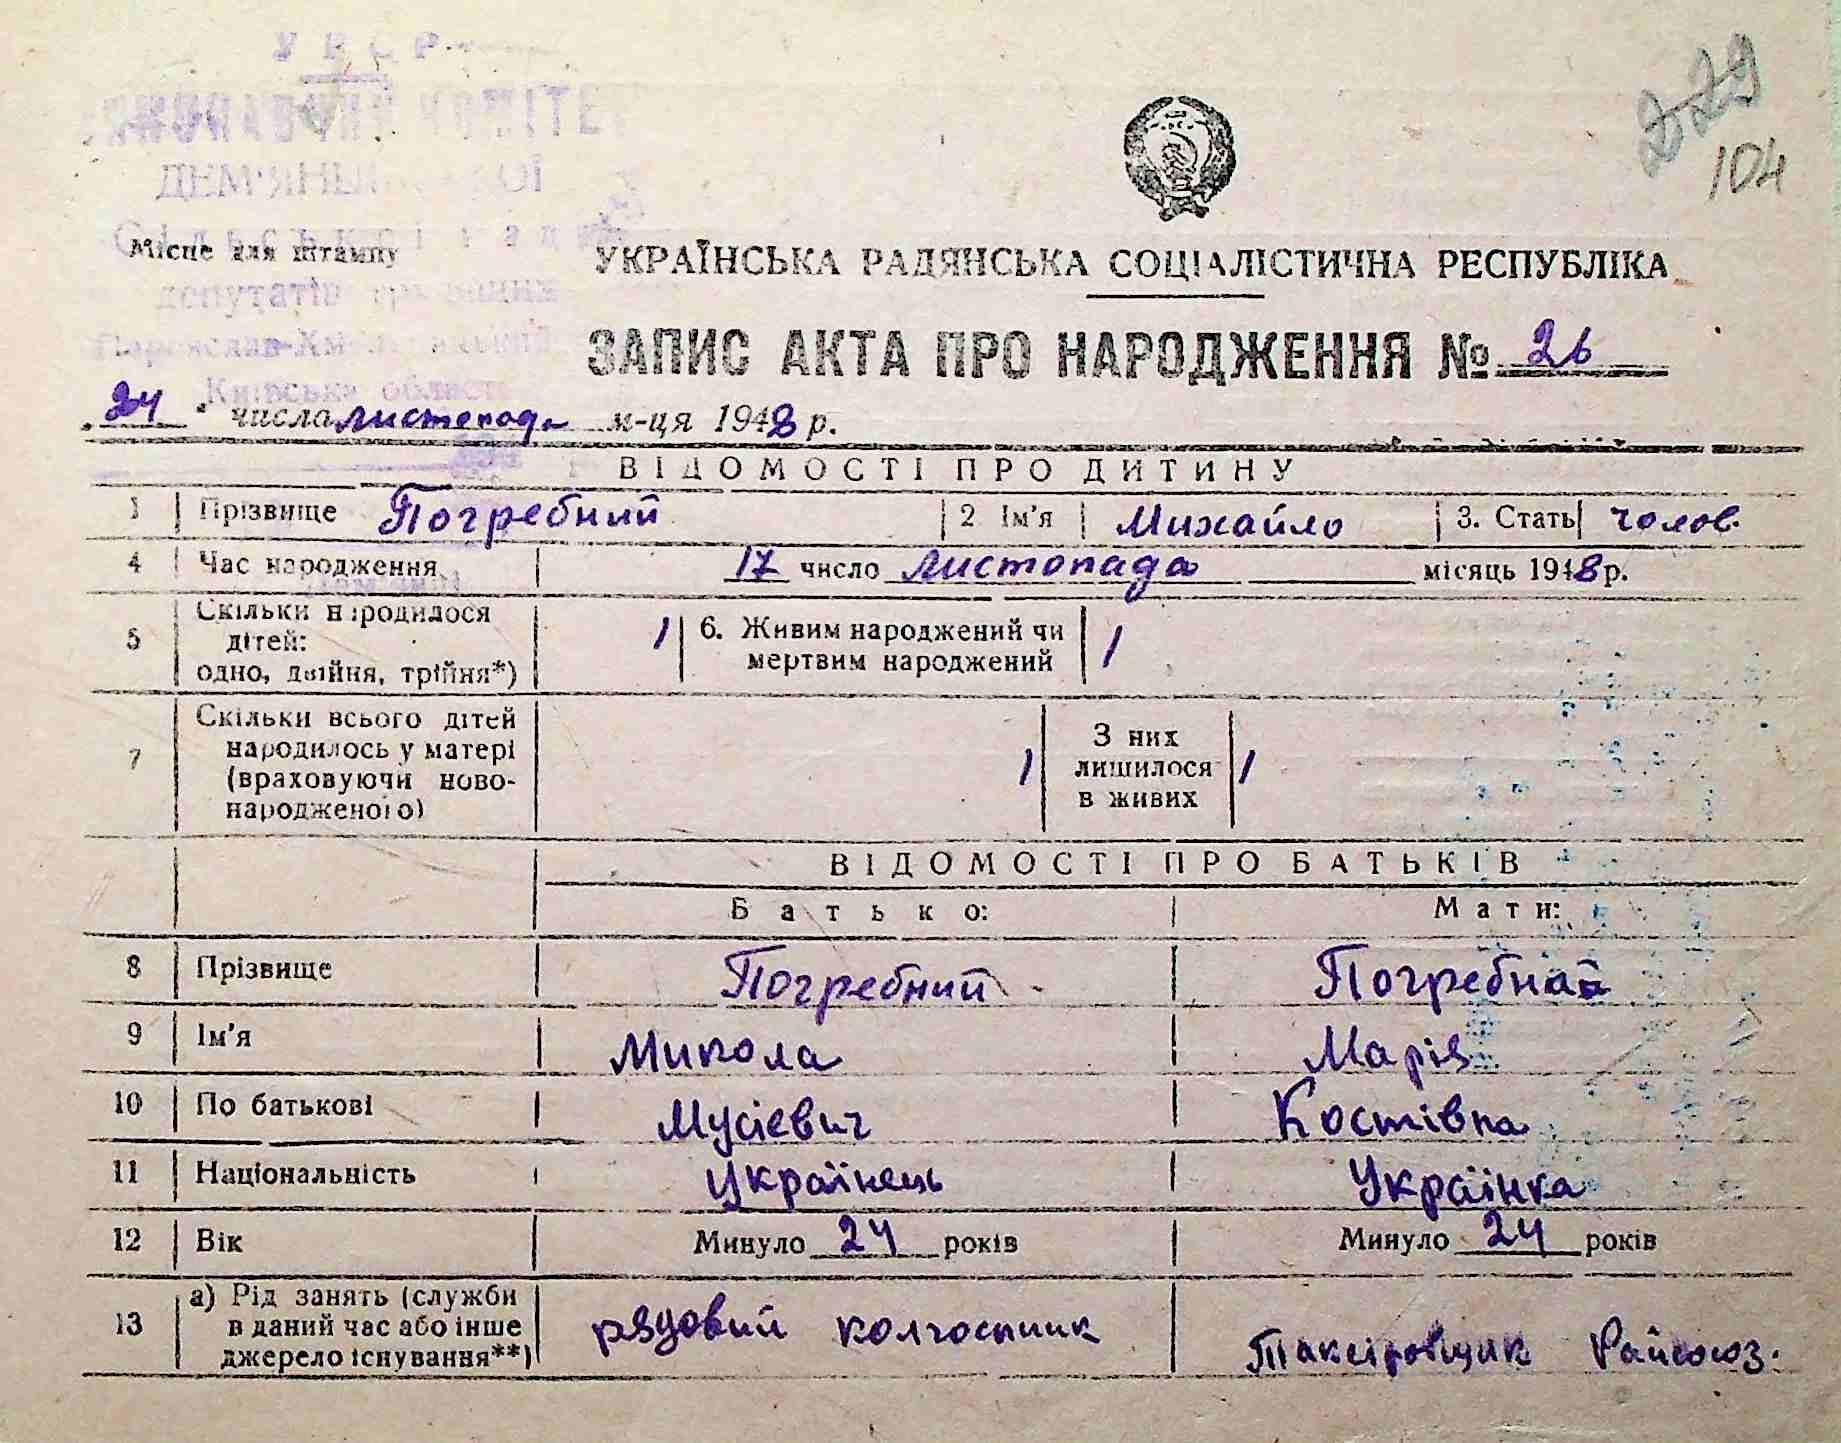 УРСР
ВИКОНАВЧИЙ КОМІТЕТ
229
104
Місце для штампу
депутатів трудящих
Переяслав-Хмельницький
Київська область
УКРАЇНСЬКА РАДЯНСЬКА СОЦІАЛІСТИЧНА РЕСПУБЛІКА
ЗАПИС АКТА ПРО НАРОДЖЕННЯ № 26
„24“ числа листопада м-ця 1948 р.
ВІДОМОСТІ ПРО ДИТИНУ
1 Прізвище Погребний 2 Ім'я Михайло 3. Стать чолов.
4 Час народження 17 число листопада місяць 1948 р.
5 Скільки народилося дітей: одно, двійня, трійня*) 1 6. Живим народжений чи мертвим народжений 1
7 Скільки всього дітей народилось у матері (враховуючи новонародженого) 1 З них лишилося в живих 1
ВІДОМОСТІ ПРО БАТЬКІВ
Батько: Мати:
8 Прізвище Погребний Погребная
9 Ім'я Микола Марія
10 По батькові Мусієвич Костівна
11 Національність Українець Українка
12 Вік Минуло 24 років Минуло 24 років
13 а) Рід занять (служби в даний час або інше джерело існування**) рядовий колгоспник Таксіровщик Райсоюз.